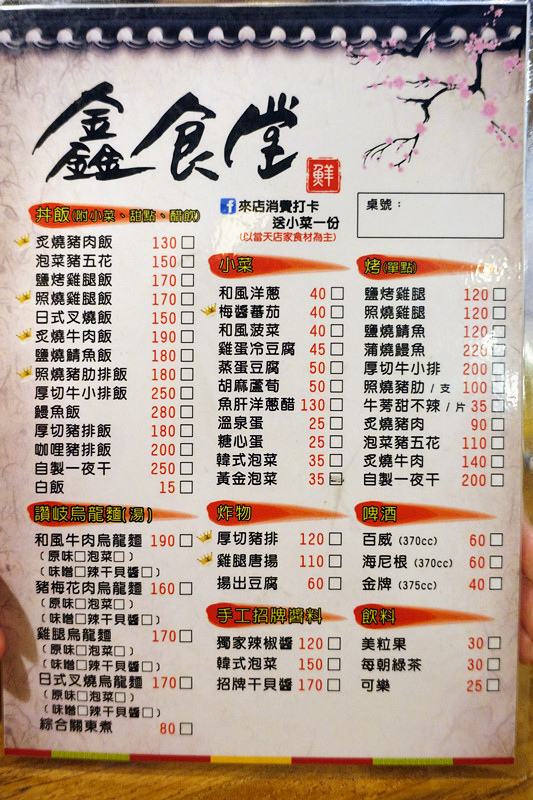 鑫食堂
鮮
來店消費打卡
送小菜一份
(以當天店家食材為主)
桌號：
丼飯(附小菜、甜點、醋飲)
炙燒豬肉飯 130
泡菜豬五花 150
鹽烤雞腿飯 170
照燒雞腿飯 170
日式叉燒飯 150
炙燒牛肉飯 190
鹽燒鯖魚飯 180
照燒豬肋排飯 180
厚切牛小排飯 250
鰻魚飯 280
厚切豬排飯 180
咖哩豬排飯 200
自製一夜干 250
白飯 15
讚岐烏龍麵(湯)
和風牛肉烏龍麵 190
(原味□泡菜□)
(味噌□辣干貝醬□)
豬梅花肉烏龍麵 160
(原味□泡菜□)
(味噌□辣干貝醬□)
雞腿烏龍麵 170
(原味□泡菜□)
(味噌□辣干貝醬□)
日式叉燒烏龍麵 170
(原味□泡菜□)
(味噌□辣干貝醬□)
綜合關東煮 80
小菜
和風洋蔥 40
梅醬蕃茄 40
和風菠菜 40
雞蛋冷豆腐 45
蒸蛋豆腐 50
胡麻蘆筍 50
魚肝洋蔥醋 130
溫泉蛋 25
糖心蛋 25
韓式泡菜 35
黃金泡菜 35
炸物
厚切豬排 120
雞腿唐揚 110
揚出豆腐 60
手工招牌醬料
獨家辣椒醬 120
韓式泡菜 150
招牌干貝醬 170
烤(單點)
鹽烤雞腿 120
照燒雞腿 120
鹽燒鯖魚 120
蒲燒鰻魚 220
厚切牛小排 200
照燒豬肋/支 100
牛蒡甜不辣/片 35
炙燒豬肉 90
泡菜豬五花 110
炙燒牛肉 140
自製一夜干 200
啤酒
百威(370cc) 60
海尼根(370cc) 60
金牌(375cc) 40
飲料
美粒果 30
每朝綠茶 30
可樂 25